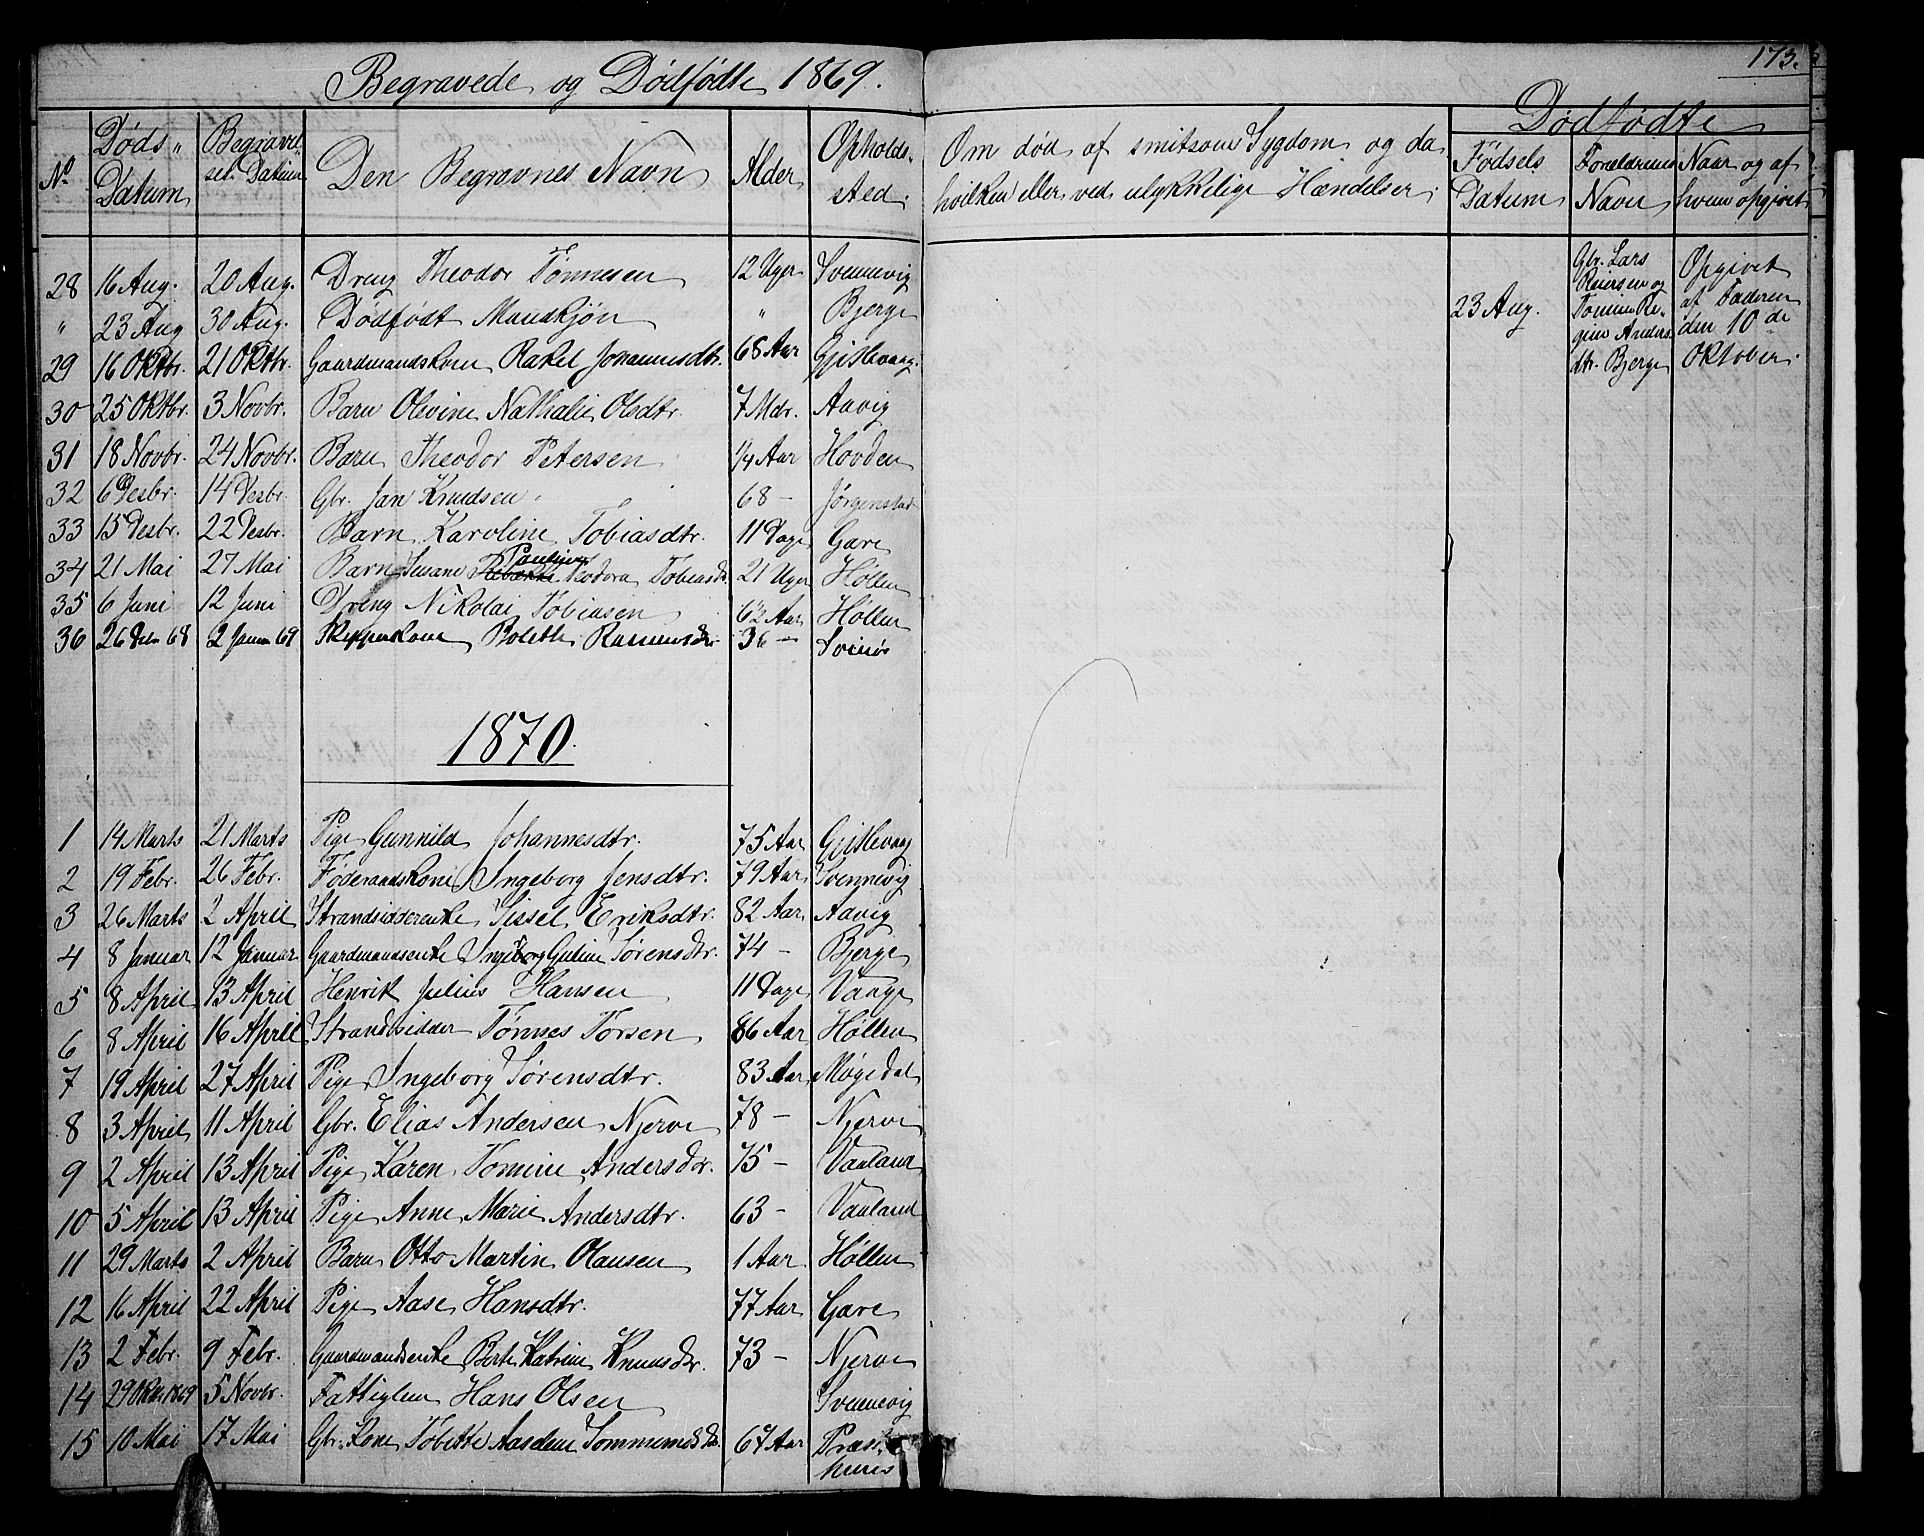 173.
Begravede og Dødfødte 1869.
Dødfødte
No Døds Datum Begravelses Datum Den Begravnes Navn Alder Opholdssted. Om død af smitsom Sygdom og da hvilken eller ved ulykkelige Hændelser. Fødsels Datum Forældrenes Navn Naar og af hvem opgivet
28 16 Aug. 20 Aug. Dreng Theodor Tønnesen 12 Uger Svennevig
" 23 Aug 30 Aug. Dødfødt Mandkjøn " Bjerge 23 Aug. Gbr. Lars Reiersen og Tomine Regine Andersdtr. Bjerge Opgivet af Faderen den 10de Oktober.
29 16 Oktbr. 21 Oktbr. Gaardmandskone Rakel Johannesdtr. 68 Aar Gjislevaag
30 25 Oktbr. 3 Novbr. Barn Olevine Nathalie Olsdtr. 7 Mdr. Aavig
31 18 Novbr. 24 Novbr. Barn Theodor Petersen 1/4 Aar Hovden
32 6 Desbr. 14 Desbr. Gbr. Jan Knudsen 68 - Jørgenstad
33 15 Desbr. 22 Desbr. Barn Karoline Tobiasdtr. 11 Dage Gare
34 21 Mai 27 Mai Barn Susane Pauline Teodora Tobiasdtr 21 Uger Høllen
35 6 Juni 12 Juni Dreng Nikolai Tobiasen 6 1/2 Aar Høllen
36 26 Des 68 2 Januar 69 Skipperkone Bolette Rasmusdtr 36 -
1870.
1 14 Marts 21 Marts Pige Gunnild Johannesdtr. 75 Aar Gjislevaag
2 19 Febr. 26 Febr. Føderaadskone Ingeborg Jensdtr. 79 Aar Svennevig
3 26 Marts 2 April Strandsidderenke Sissel Eriksdtr. 82 Aar Aavig
4 8 Januar 12 Januar Gaardmandsenke Ingeborg Guline Sørensdtr. 74 - Bjerge
5 8 April 13 April Henrik Julius Hansen 11 Dage Vaage
6 8 April 16 April Strandsidder Tønnes Torsen 86 Aar Høllen
7 19 April 27 April Pige Ingeborg Sørensdtr. 83 Aar Møgedal
8 3 April 11 April Gbr. Elias Andersen Njerve 78 - Njerve
9 2 April 13 April Pige Karen Tomine Andersdtr. 75 - Vauland
10 5 April 13 April Pige Anne Marie Andersdtr. 63 - Vauland
11 29 Marts 2 April Barn Otto Martin Olausen 1 Aar Høllen
12 16 April 22 April Pige Aase Hansdtr. 77 Aar Gare
13 2 Febr. 9 Febr. Gaardmandsenke Berte Katrine Knudsdtr. 73 - Njerve
14 29 Oktbr 1869 5 Novbr. Fattiglem Hans Olsen Svennevig
15 10 Mai 17 Mai Gbr. Kone Tobette Aasdene 67 Aar Præsthuus